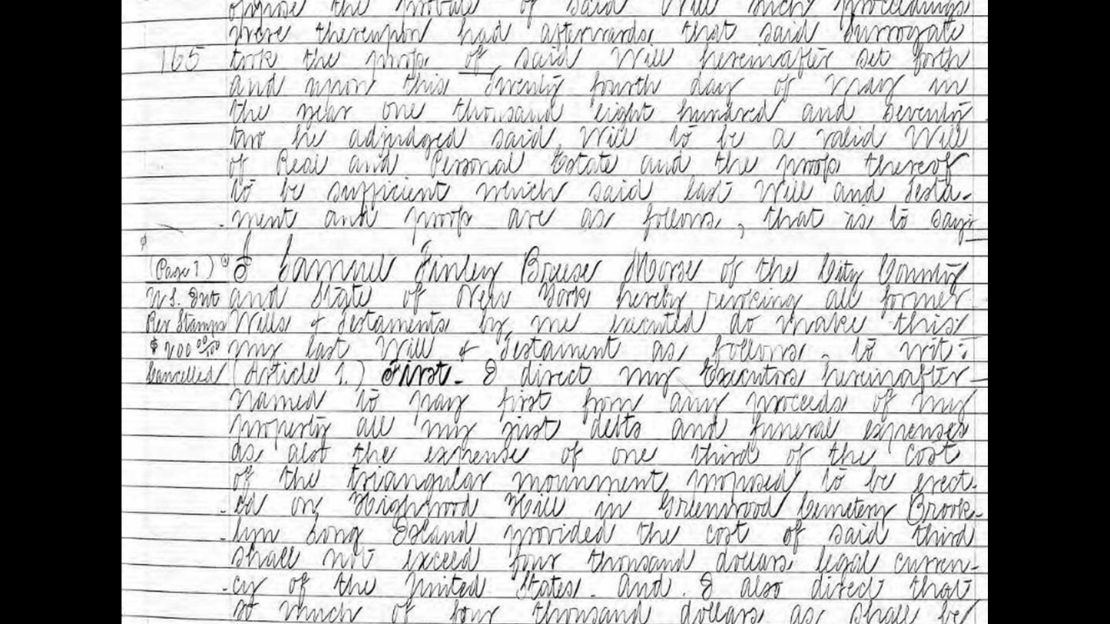 oppose the probate of said Will such proceedings
were thereupon had afterwards that said Surrogate
165 took the proofs of said Will hereinafter set forth
and upon this Twenty fourth day of May in
the year one thousand eight hundred and seventy
two he adjudged said Will to be a valid Will
of Real and Personal Estate and the proofs thereof
to be sufficient which said last Will and Testa-
ment and proofs are as follows, that is to say
(Page 1) I Samuel Finley Breese Morse of the City County
U.S. Int and State of New York hereby revoking all former
Rev Stamps Wills & Testaments by me executed do make this
$200 00/100 my last Will & Testament as follows, to wit:
Cancelled (Article 1.) First- I direct my Executors hereinafter
named to pay first from any proceeds of my
property all my just debts and funeral expenses
as also the expense of one third of the cost
of the triangular monument proposed to be erect-
ed on Highwood Hill in Greenwood Cemetery Brook-
lyn Long Island provided the cost of said third
shall not exceed four thousand dollars legal curren-
cy of the United States. And I also direct that
so much of four thousand dollars as shall be